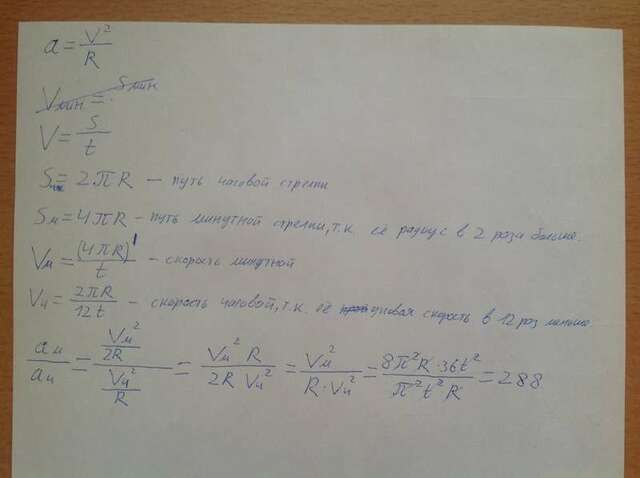 a = V²/R
Vмин = Sмин
V = S/t
Sч = 2πR — путь часовой стрелки
Sм = 4πR - путь минутной стрелки, т.к. её радиус в 2 раза больше.
Vм = (4πR)/t - скорость минутной
Vч = 2πR/12t - скорость часовой, т.к. её угловая скорость в 12 раз меньше.
aм/aч = (Vм²/2R)/(Vч²/R) = Vм² R/2R Vч² = Vм²/R·Vч² = 8π²R·36t²/π²t²R = 288